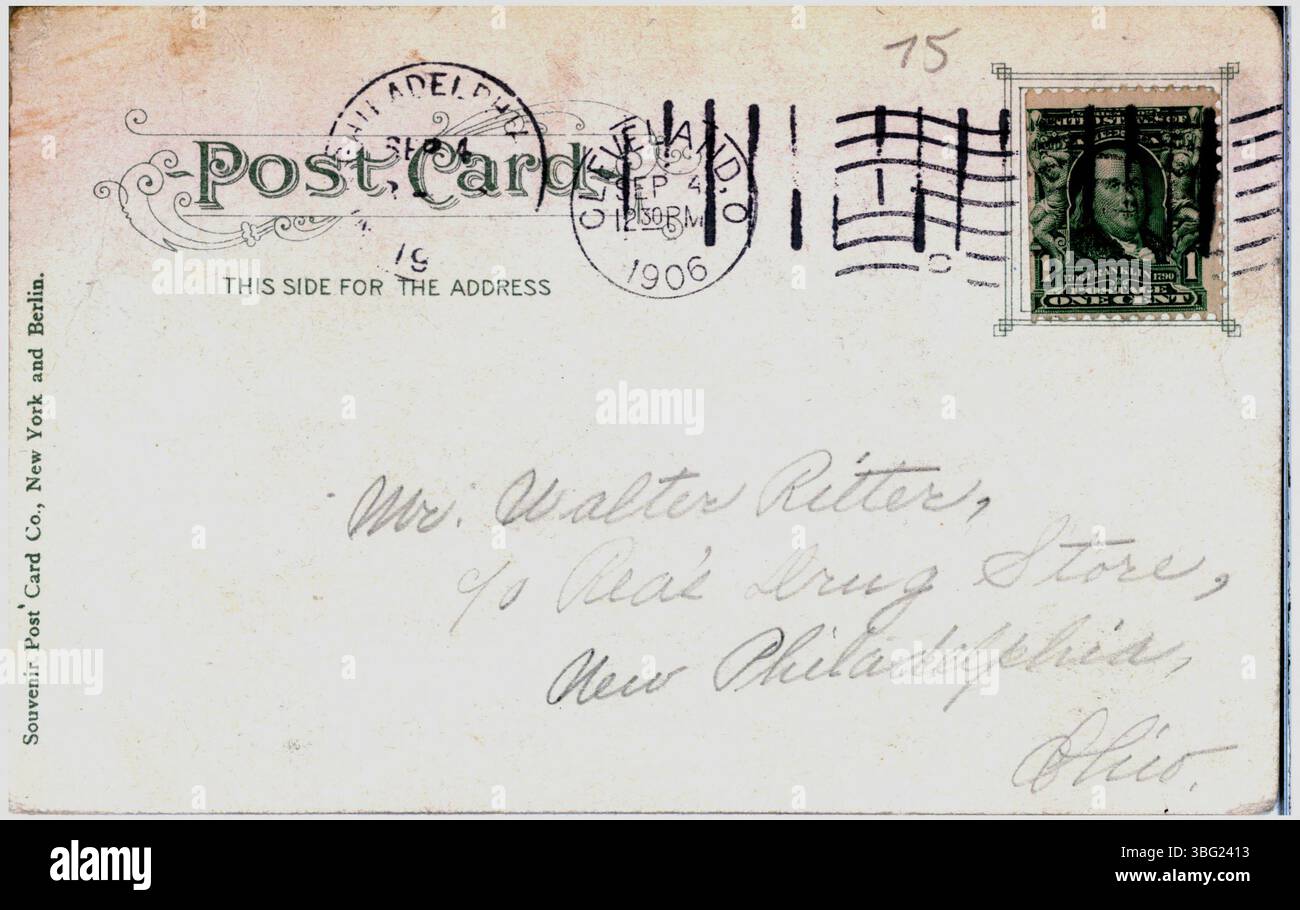 75
PHILADELPHIA
SEP 4
19
CLEVELAND, O
SEP 4
12 30 PM
1906
Post Card
THIS SIDE FOR THE ADDRESS
UNITED STATES OF
1790
1 1
ONE CENT
Souvenir Post Card Co., New York and Berlin.
Mr. Walter Ritter,
c/o Rea's Drug Store,
New Philadelphia,
Ohio.
alamy
Image ID: 3BG2413
www.alamy.com